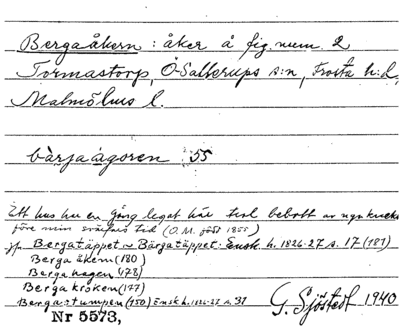 Bergaåkern : åker å fig. num. 2
Tormastorp, Ö. Sallerups s:n, Frosta h:d,
Malmöhus l.
bàrjaágoren 55
Ett hus har en gång legat här bebott av
före min svärfars tid (O. M. född 1855)
jfr Bergatäppet ~ Bärgatäppet. Ensk. h. 1826-27 s. 17 (181)
Berga åkern (180)
Berga hagen (178)
Berga kröken (177)
Berga-stumpen (150) Ensk h. 1826-27 s. 31
G. Sjöstedt 1940
Nr 5573,